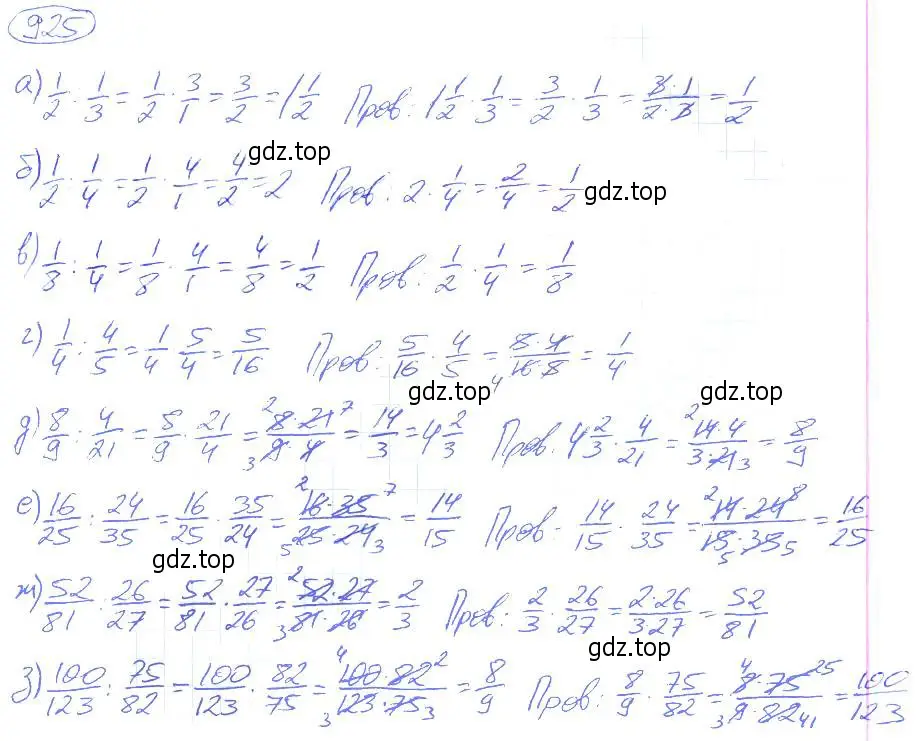 925
а) 1/2 : 1/3 = 1/2 · 3/1 = 3/2 = 1 1/2 Пров: 1 1/2 · 1/3 = 3/2 · 1/3 = 3·1/2·3 = 1/2
gdz.top
б) 1/2 : 1/4 = 1/2 · 4/1 = 4/2 = 2 Пров: 2 · 1/4 = 2/4 = 1/2
gdz.top
в) 1/8 : 1/4 = 1/8 · 4/1 = 4/8 = 1/2 Пров: 1/2 · 1/4 = 1/8
gdz.top
г) 1/4 : 4/5 = 1/4 · 5/4 = 5/16 Пров: 5/16 · 4/5 = 5·4/16·5 4 = 1/4
gdz.top
д) 8/9 : 4/21 = 8/9 · 21/4 = 2 8·21 7/3 9·4 = 14/3 = 4 2/3 Пров: 4 2/3 · 4/21 = 2 14·4/3·21 3 = 8/9
е) 16/25 : 24/35 = 16/25 · 35/24 = 2 16·35 7/5 25·24 3 = 14/15 Пров: 14/15 · 24/35 = 2 14·24 8/15·35 5 5 = 16/25
gdz.top
ж) 52/81 : 26/27 = 52/81 · 27/26 = 2 52·27/3 81·26 = 2/3 Пров: 2/3 · 26/27 = 2·26/3·27 = 52/81
gdz.top
з) 100/123 : 75/82 = 100/123 · 82/75 = 4 100·82 2/3 123·75 3 = 8/9 Пров: 8/9 · 75/82 = 4 8·75 25/3 9·82 41 = 100/123